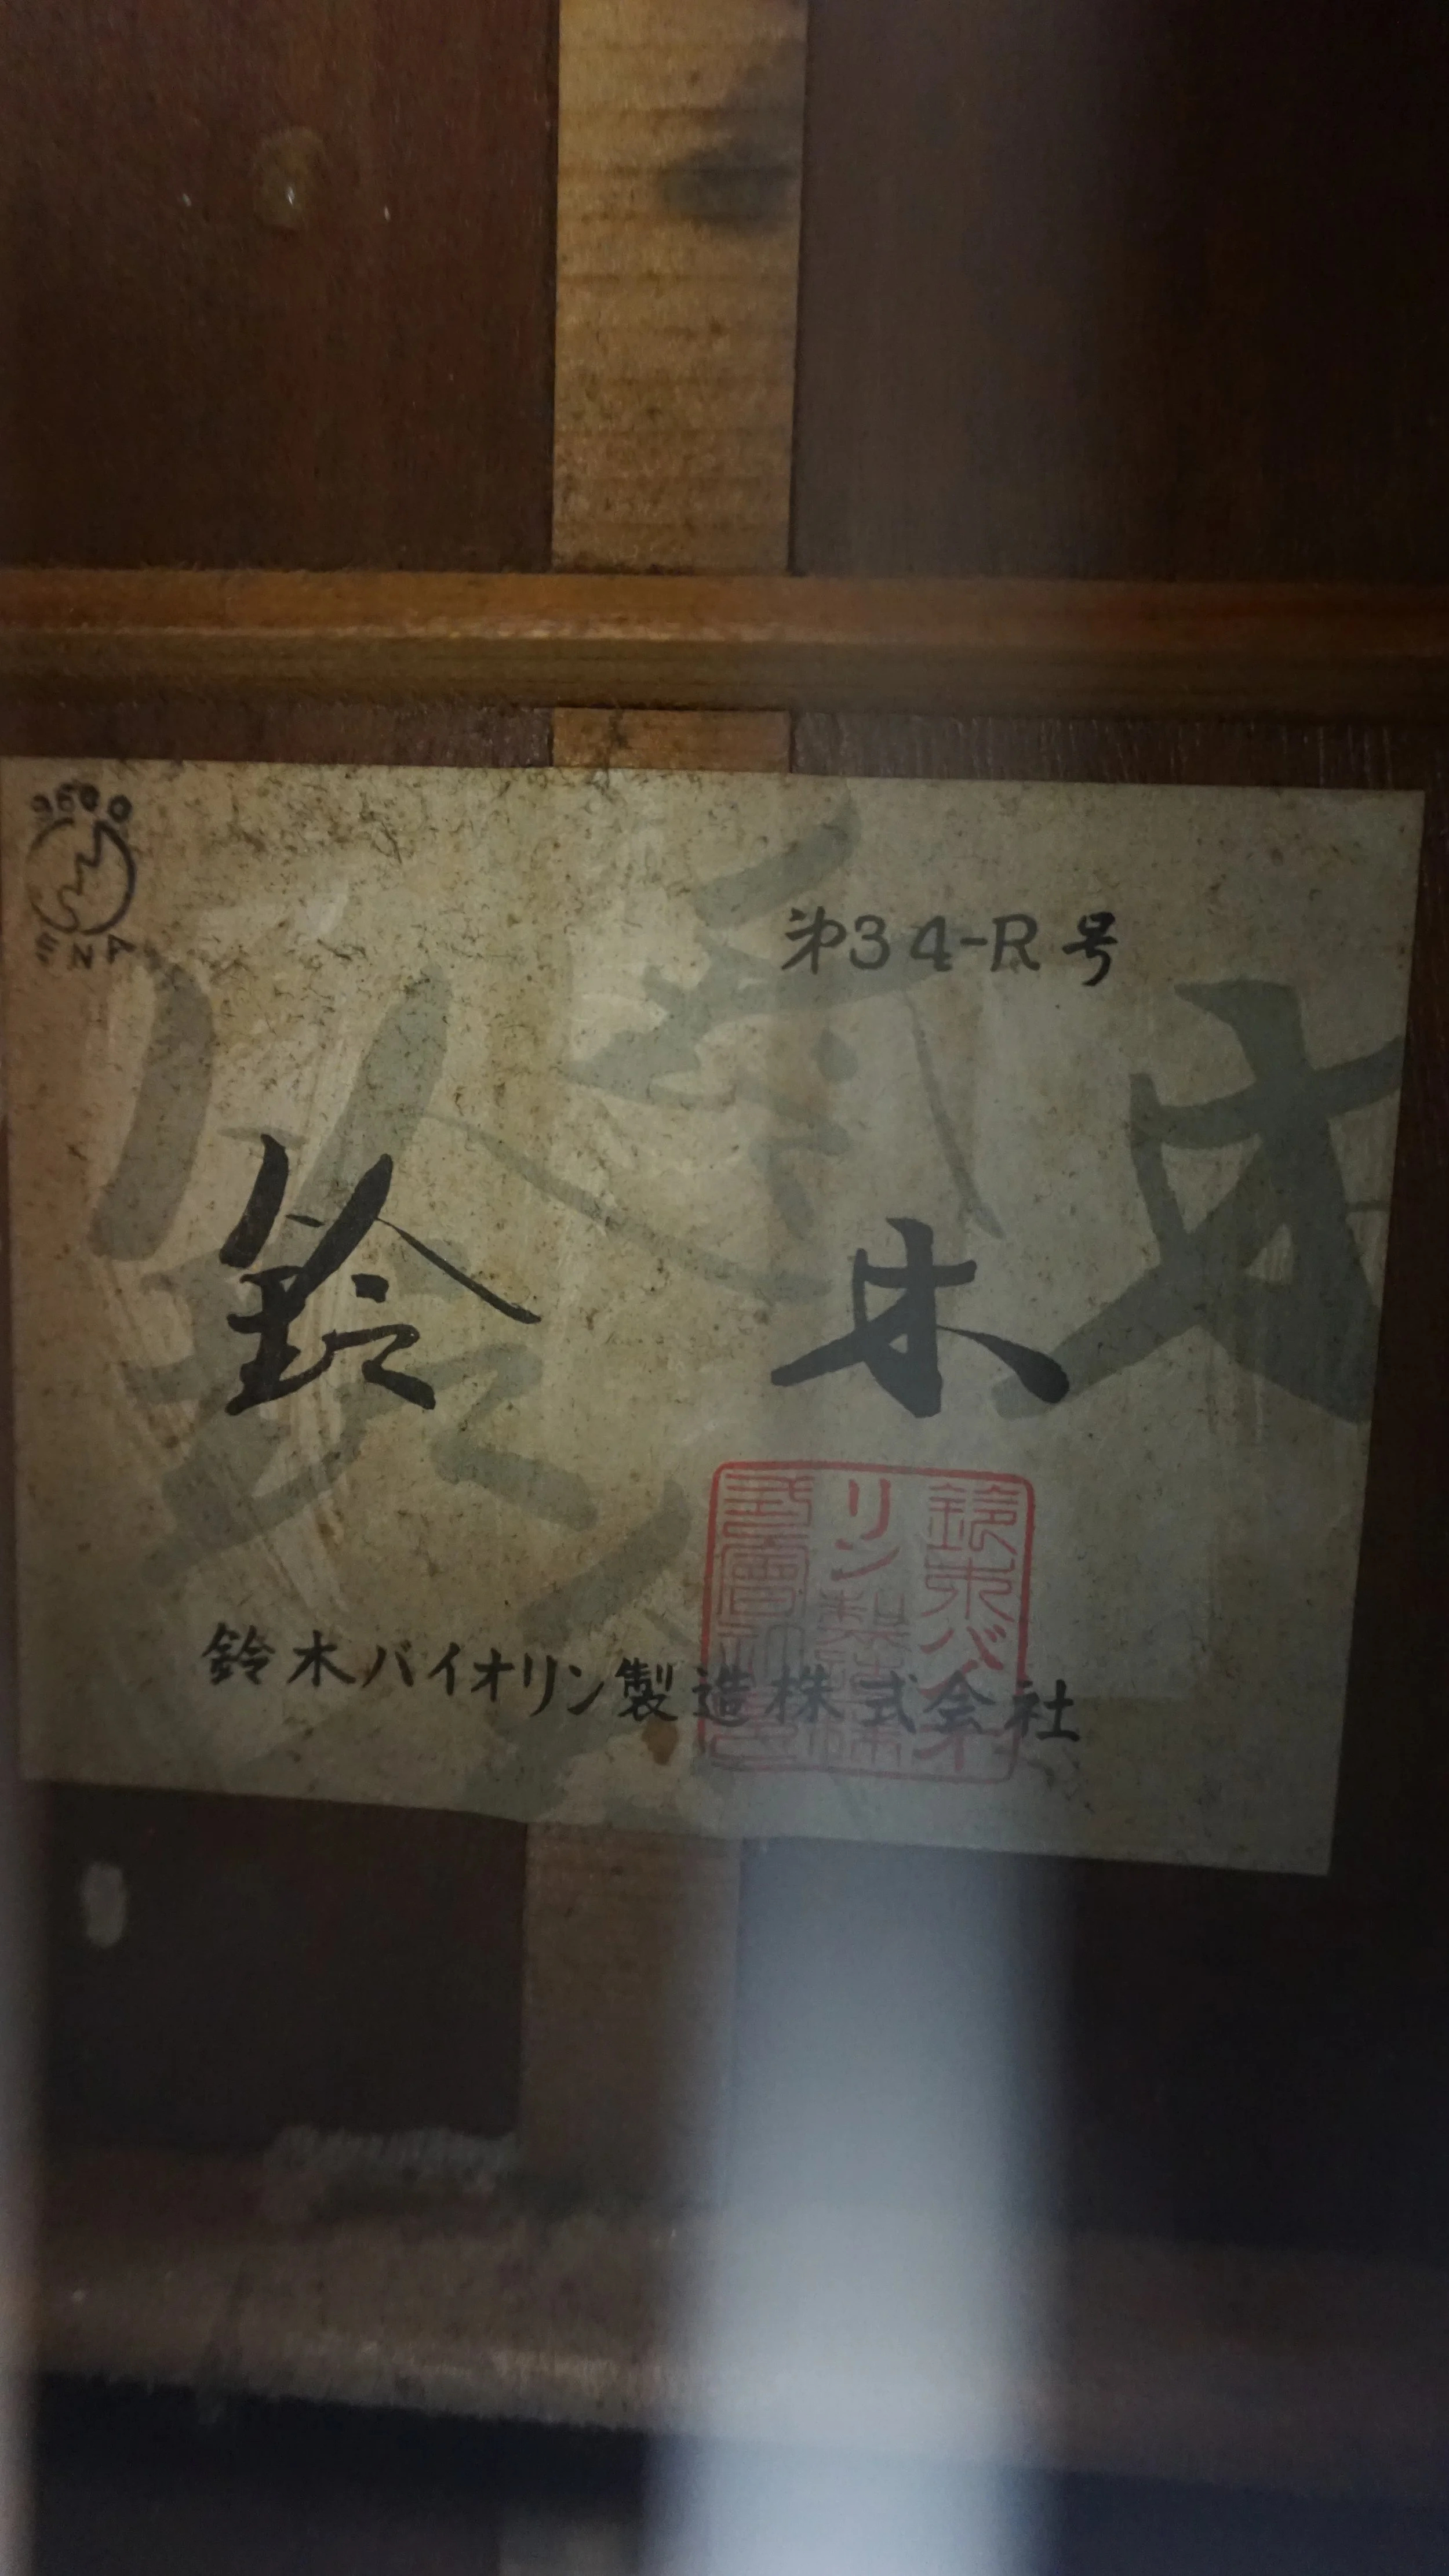 第34-R号
鈴木
鈴木バイオリン製造株式会社
鈴木バイオ
リン製造株
式會社之印